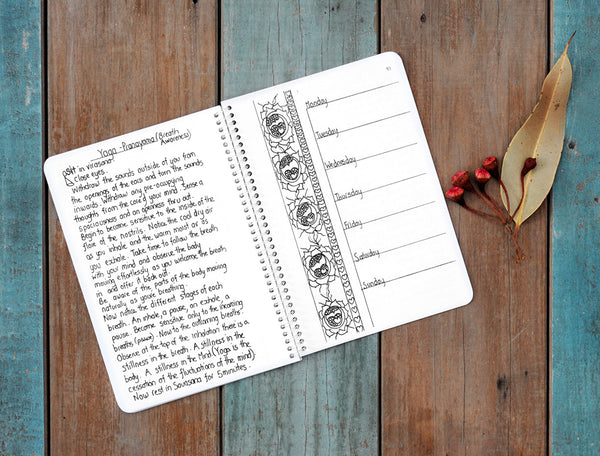 Yoga - Pranayama (Breath
Awareness)
Sit in virasana
Close eyes.
Withdraw the sounds outside of you from
the openings of the ears and turn the sounds
inwards. Withdraw any pre-occupying
thoughts from the core of your mind. Sense a
spaciousness and an openness thru out.
Begin to become sensitive to the inside of the
flare of the nostrils. Notice the cool dry air
as you inhale and the warm moist air as
you exhale. Take time to follow the breath
with your mind and observe the body
moving effortlessly as you welcome the breath
in and offer it back out.
Be aware of the parts of the body moving
naturally as you're breathing.
Now notice the different stages of each
breath. An inhale, a pause, an exhale, a
pause. Become sensitive only to the incoming
breaths, (pause). Now to the outgoing breaths.
Observe at the top of the inhalation there is a
stillness in the breath. A stillness in the
body. A stillness in the mind (Yoga is the
cessation of the fluctuations of the mind).
Now rest in Savasana for 5 minutes.
Monday
Tuesday
Wednesday
Thursday
Friday
Saturday
Sunday